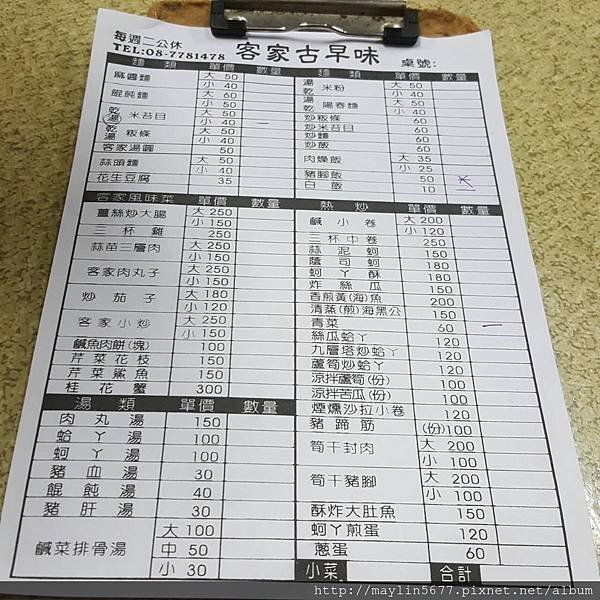 每週二公休
TEL:08-7781478
客家古早味
桌號:
麵類 單價 數量
麻醬麵 大 50
小 40
餛飩麵 大 60
小 50
乾 湯 米苔目 大 50
小 40 一
乾 湯 粄條 大 50
小 40
客家湯圓 50
蒜頭麵 大 50
小 40
花生豆腐 35
麵類 單價 數量
湯 乾 米粉 大 50
小 40
湯 乾 陽春麵 大 50
小 40
炒粄條 60
炒米苔目 60
炒麵 60
炒飯 60
肉燥飯 大 35
小 25
豬腳飯 50
白飯 10
客家風味菜 單價 數量
薑絲炒大腸 大 250
小 150
三杯雞 250
蒜苗三層肉 大 250
小 150
客家肉丸子 大 250
小 150
炒茄子 大 180
小 120
客家小炒 大 250
小 150
鹹魚肉餅(塊) 100
芹菜花枝 150
芹菜鯊魚 150
桂花蟹 300
熱炒 單價 數量
鹹小卷 大 200
小 120
三杯中卷 250
蒜泥蚵 150
蔭司蚵 180
蚵ㄚ酥 180
炸絲瓜 150
香煎黃(海)魚 200
清蒸(煎)海黑公 150
青菜 60 一
絲瓜蛤ㄚ 120
九層塔炒蛤ㄚ 120
蘆筍炒蛤ㄚ 120
涼拌蘆筍(份) 100
涼拌苦瓜(份) 100
煙燻沙拉小卷 120
豬蹄筋 (份)100
筍干封肉 大 200
小 100
筍干豬腳 大 200
小 100
酥炸大肚魚 150
蚵ㄚ煎蛋 120
蔥蛋 60
小菜 合計
湯類 單價 數量
肉丸湯 150
蛤ㄚ湯 100
蚵ㄚ湯 100
豬血湯 30
餛飩湯 40
豬肝湯 30
鹹菜排骨湯 大 100
中 50
小 30
http://maylin5677.pixnet.net/album